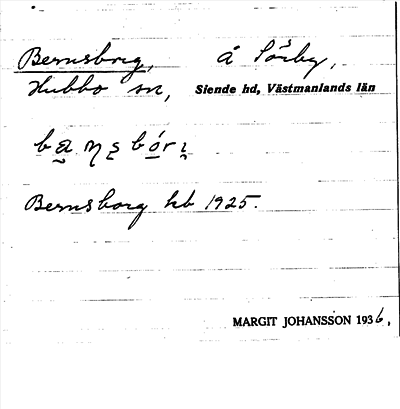 Bernsborg, å Sörby,
Hubbo sn, Siende hd, Västmanlands län
Bernsborg kb 1925.
MARGIT JOHANSSON 1936,